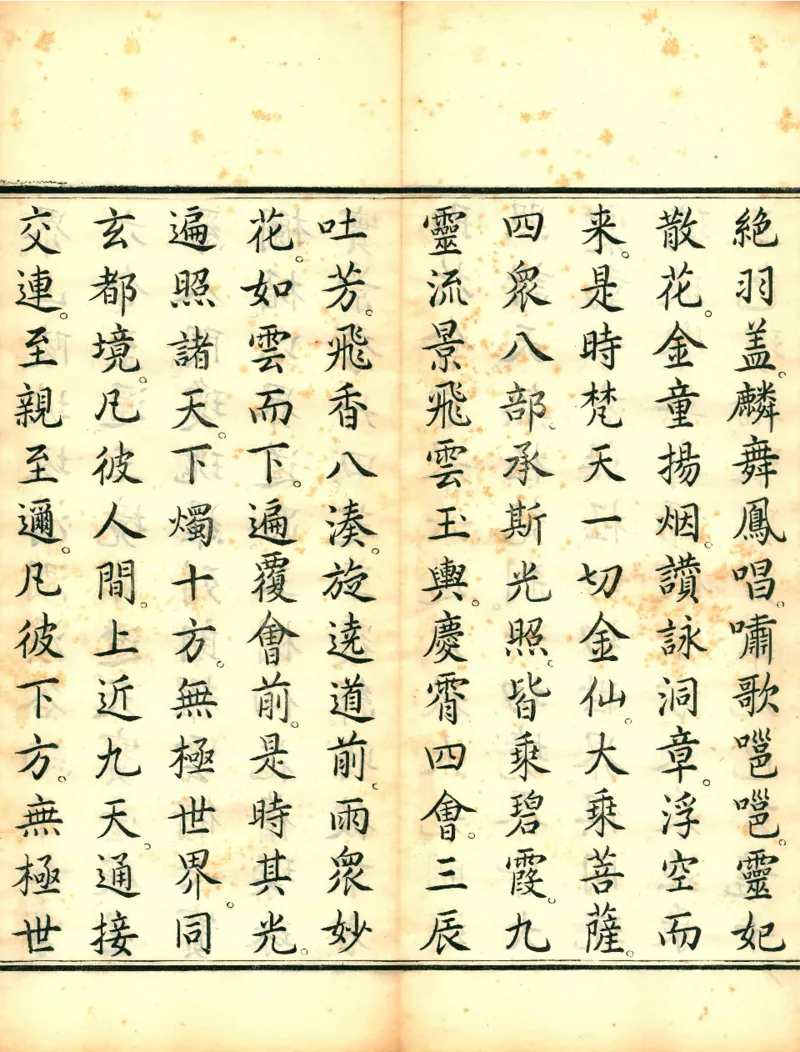 絕羽盖。麟舞鳳唱。嘯歌嗈嗈。靈妃
散花。金童揚烟。讚詠洞章。浮空而
来。是時梵天一切金仙。大乘菩薩。
四衆八部。承斯光照。皆乘碧霞。九
靈流景飛雲玉輿。慶霄四會。三辰
吐芳。飛香八湊。旋遶道前。雨衆妙
花。如雲而下。遍覆會前。是時其光。
遍照諸天。下燭十方。無極世界。同
玄都境。凡彼人間。上近九天。通接
交連。至親至邇。凡彼下方。無極世